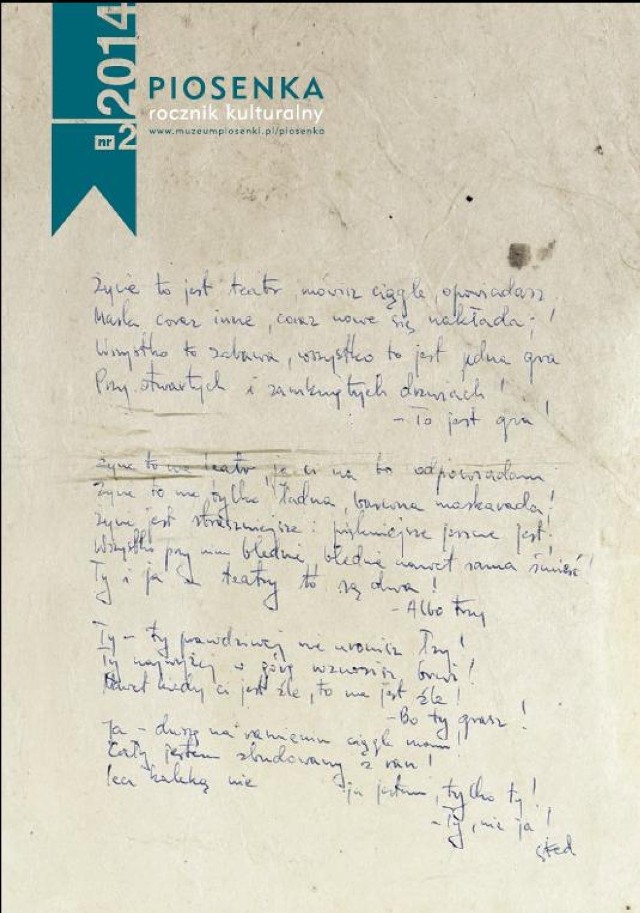 2014
nr 2
PIOSENKA
rocznik kulturalny
www.muzeumpiosenki.pl/piosenka
Życie to jest teatr, mówisz ciągle, opowiadasz
Maski coraz inne, coraz nowe się nakłada;!
Wszystko to zabawa, wszystko to jest jedna gra
Przy otwartych i zamkniętych drzwiach!
- To jest gra!
Życie to nie teatr, ja ci na to odpowiadam
Życie to nie tylko ładna, barwna maskarada!
Życie jest straszniejsze i piękniejsze jeszcze jest!
Wszystko przy nim blednie, blednie nawet sama śmierć!
Ty i ja teatry to są dwa!
- Albo trzy
Ty - ty prawdziwej nie uronisz łzy!
Ty najwyżej w górę wznosisz brwi!
Nawet kiedy ci jest źle, to nie jest źle!
- Bo ty grasz!
Ja - duszę na ramieniu ciągle mam!
Cały jestem zbudowany z ran!
Lecz kaleką nie ja jestem, tylko ty!
- Ty, nie ja!